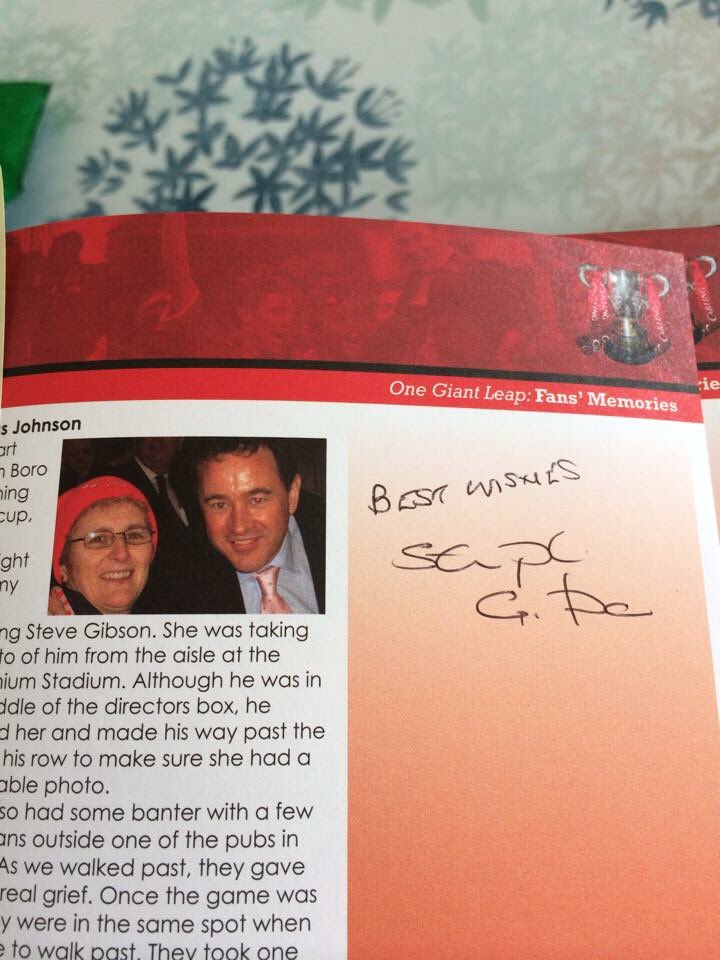 One Giant Leap: Fans' Memories
s Johnson
art
n Boro
ning
cup,
ght
my
ng Steve Gibson. She was taking
to of him from the aisle at the
nium Stadium. Although he was in
ddle of the directors box, he
d her and made his way past the
his row to make sure she had a
able photo.
so had some banter with a few
ans outside one of the pubs in
As we walked past, they gave
real grief. Once the game was
y were in the same spot when
e to walk past. They took one
BEST WISHES